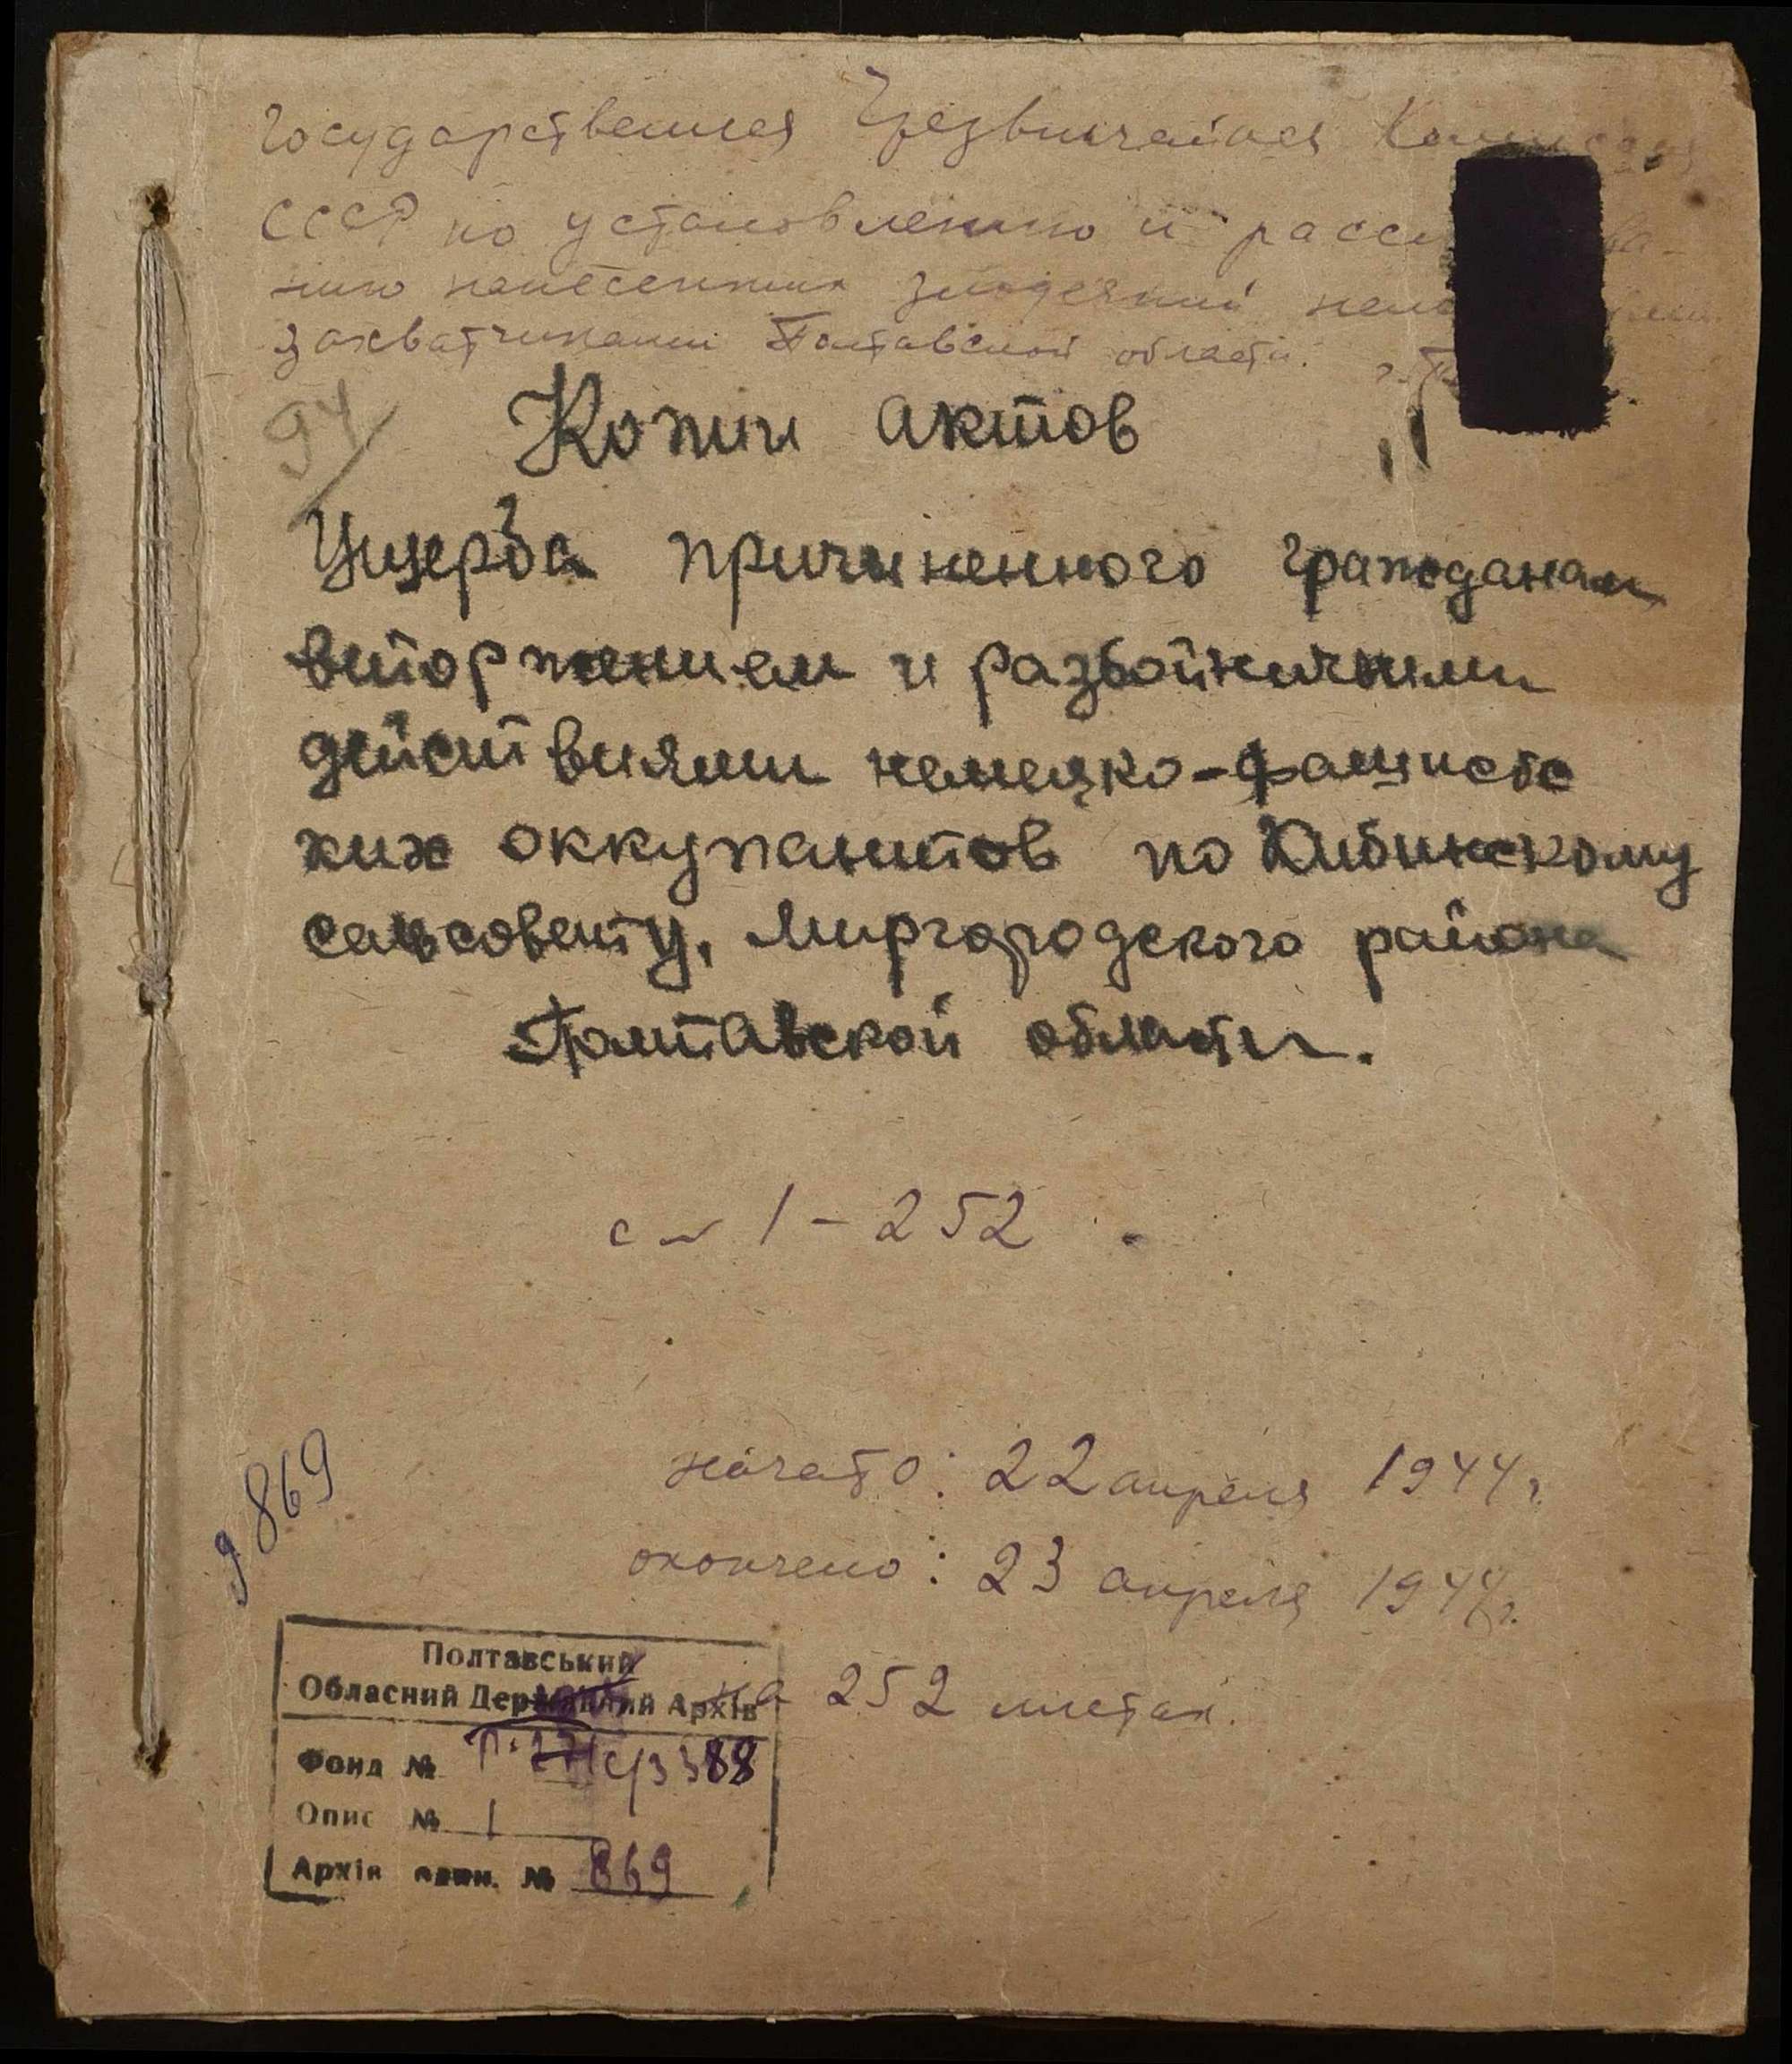 Государственная Чрезвычайная Комиссия
СССР по установлению и
нию нанесенных злодеяний
захватчиками Полтавской области.
94
Копии актов
Ущерба причиненного гражданам
вторжением и разбойничьими
действиями немецко-фашистс
ких оккупантов по Хибинскому
сельсовету, Миргородского района
Полтавской области.
с 1-252
9869
начато: 22 апреля 1944 г.
окончено: 23 апреля 1944 г.
на 252 листах.
Полтавський
Обласний Державний Архів
Фонд № 3388
Опис № 1
Архів № 869